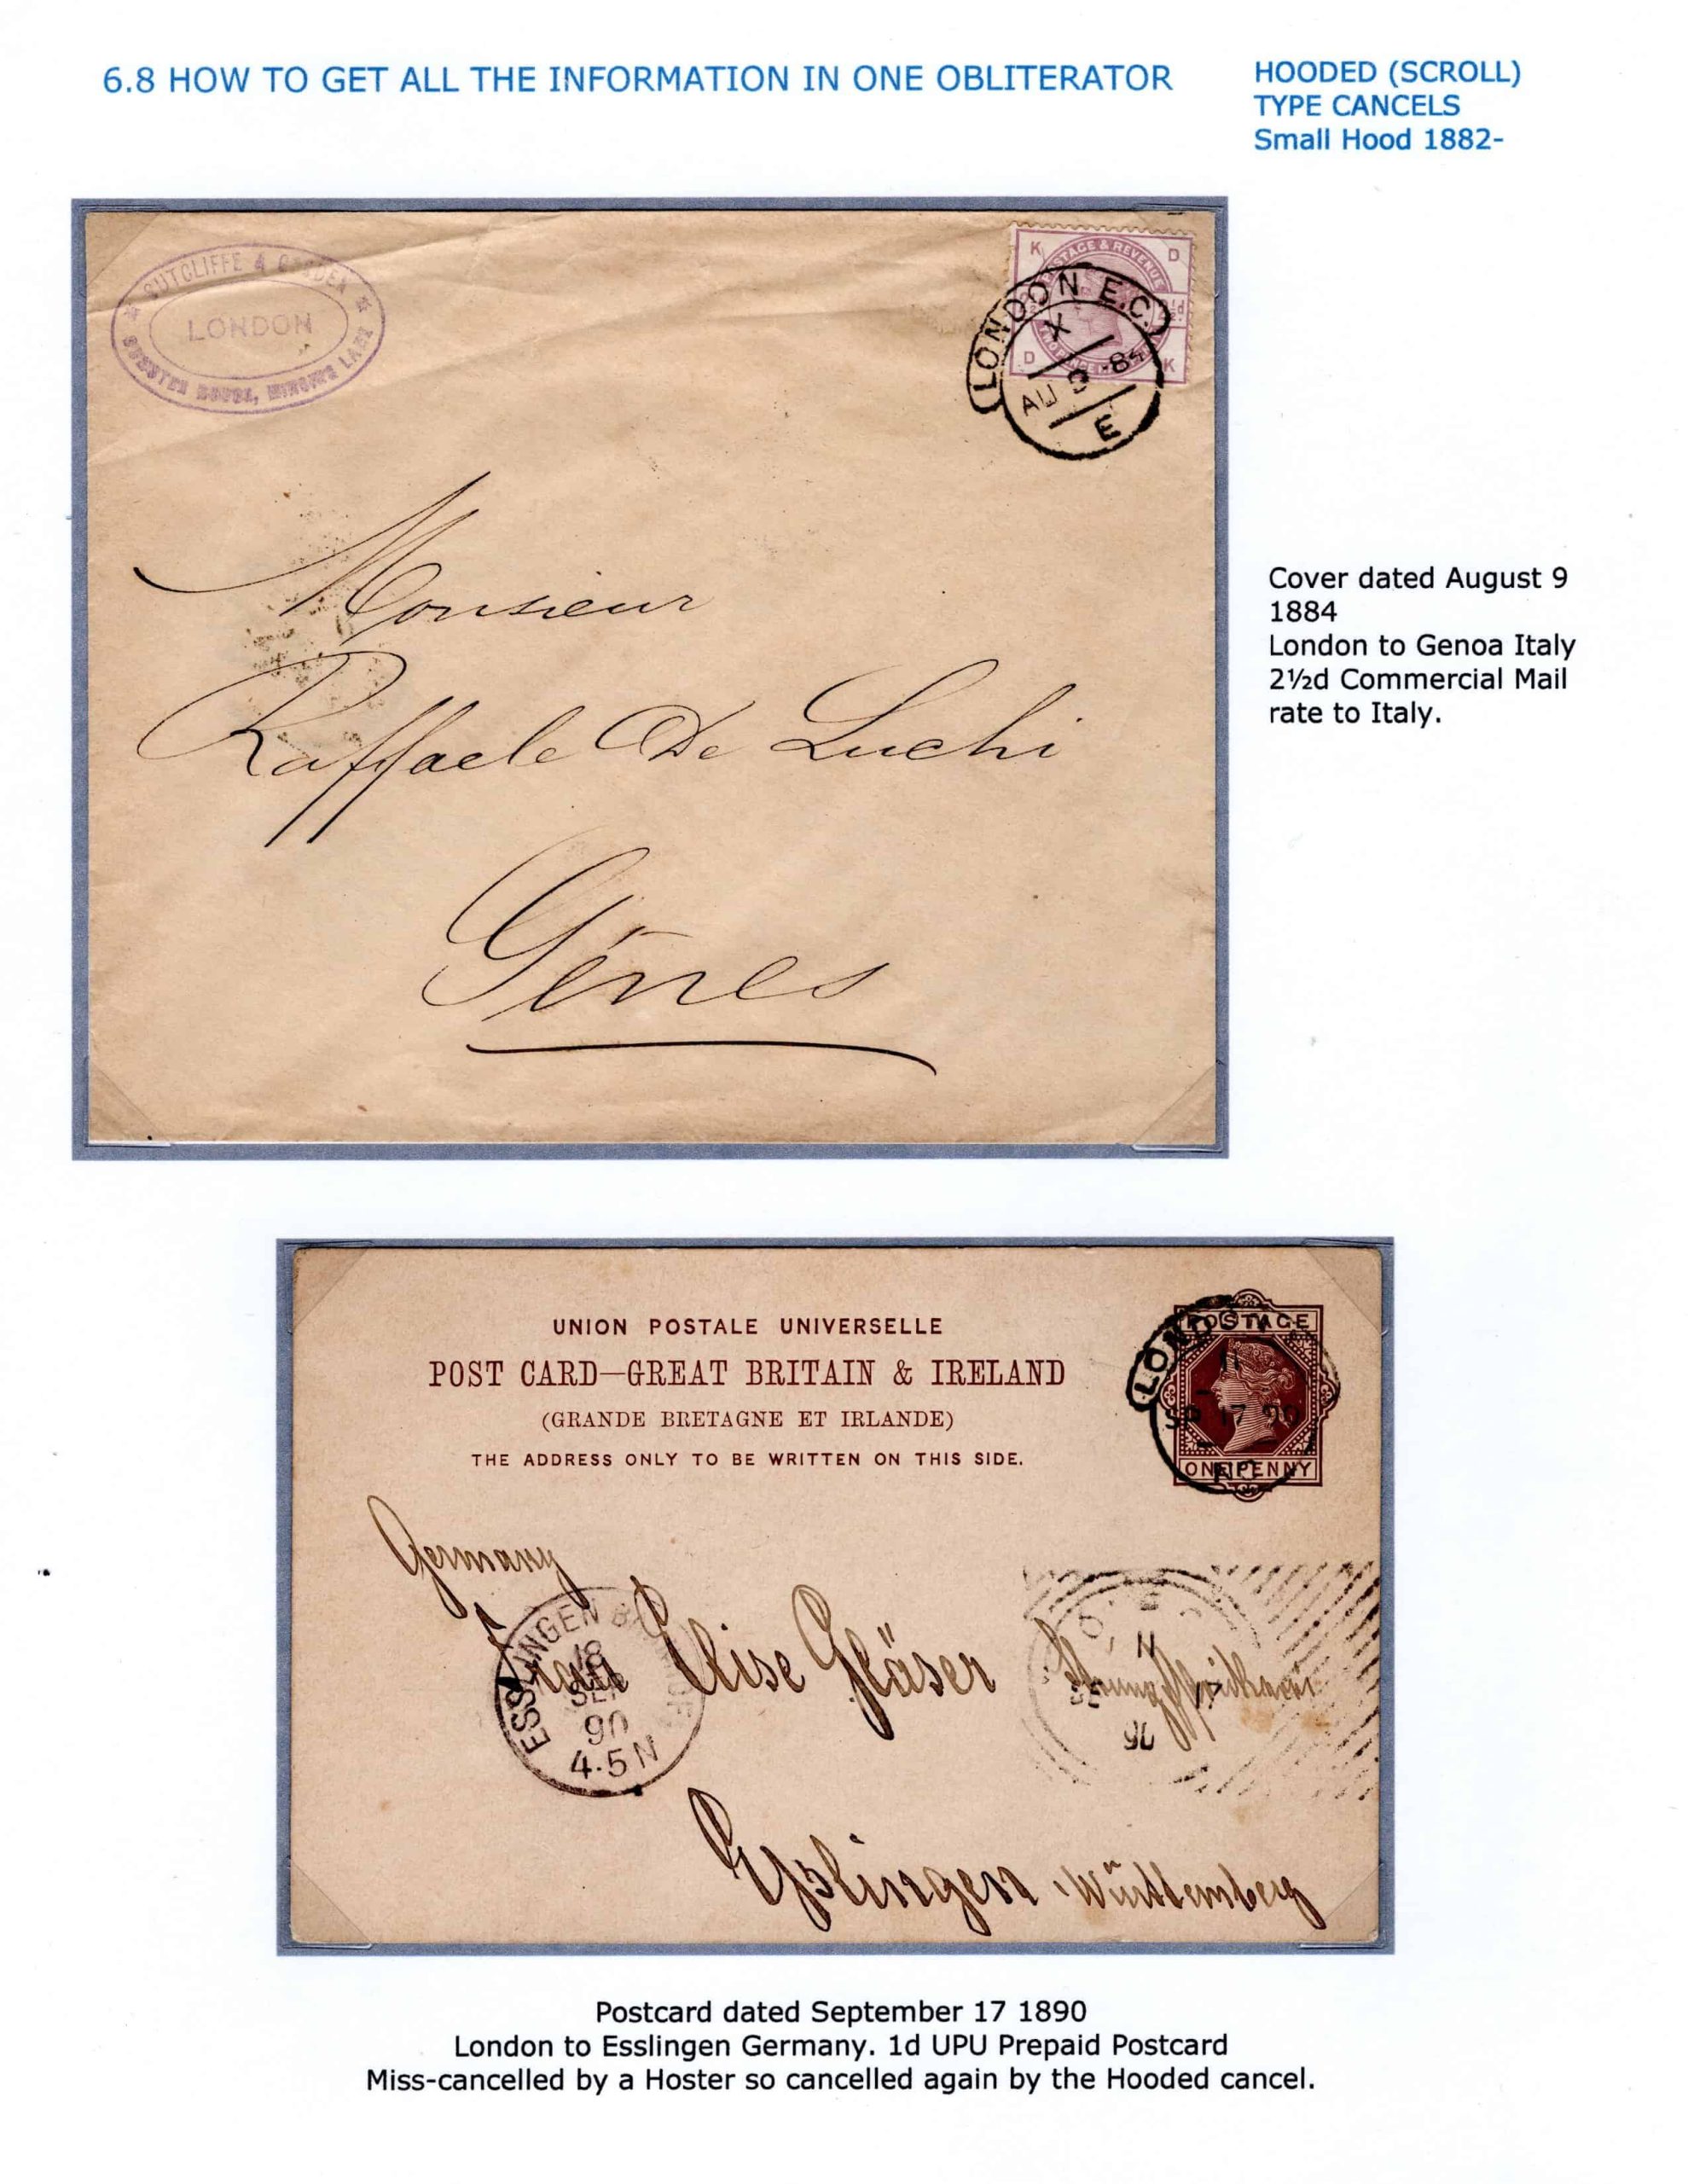 6.8 HOW TO GET ALL THE INFORMATION IN ONE OBLITERATOR
HOODED (SCROLL)
TYPE CANCELS
Small Hood 1882-
SUTCLIFFE &
LONDON
LANE
K D
POSTAGE & REVENUE
D K
LONDON E.C.
X
AU 9 84
E
Monsieur
Raffaele De Luchi
Gênes
Cover dated August 9
1884
London to Genoa Italy
2½d Commercial Mail
rate to Italy.
UNION POSTALE UNIVERSELLE
POST CARD—GREAT BRITAIN & IRELAND
(GRANDE BRETAGNE ET IRLANDE)
THE ADDRESS ONLY TO BE WRITTEN ON THIS SIDE.
POSTAGE
ONE PENNY
LONDON
11
SP 17 90
Germany
Frau Elise Gläser
ESSLINGEN
18
SEP
90
4-5N
11
90
Esslingen Württemberg
Postcard dated September 17 1890
London to Esslingen Germany. 1d UPU Prepaid Postcard
Miss-cancelled by a Hoster so cancelled again by the Hooded cancel.